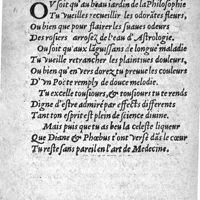 OV soit qu'au beau iardin de la Philosophie
Tu vueilles recueillir les odorātes fleurs,
Ou bien que pour flairer les suaues odeurs
Des rosiers arrosez de l'eau d'Astrologie.
Ou soit qu'aux lāguissans de longue maladie
Tu vueille retrancher les plaintiues douleurs,
Ou bien qu'en vers dorez tu preuue les couleurs
D'vn Poete remply de douce melodie.
Tu excelle tousiours, & tousiours tu te rends
Digne d'estre admiré par effects differents
Tant ton esprit est plein de science diuine.
Mais puis que tu as beu la celeste liqueur
Que Diane & Phœbus t'ont versé dās le cœur
Tu reste sans pareil en l'art de Medecine.